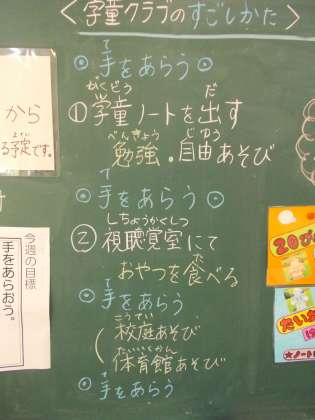 ＜学童クラブのすごしかた＞
◎手をあらう◎
①学童ノートを出す
勉強・自由あそび
◎手をあらう◎
②視聴覚室にて
おやつを食べる
◎手をあらう
校庭あそび
体育館あそび
◎手をあらう
から
る予定です。
今週の目標
手をあらおう。